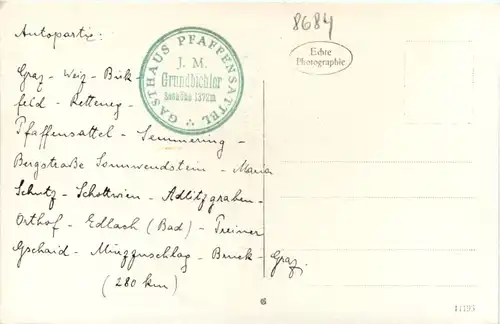 Autopartie:
Graz - Weiz - Birk-
feld - Retteneg -
Pfaffensattel - Semmering -
Bergstraße Sonnwendstein - Maria
Schutz - Schottwien - Adlitzgraben -
Orthof - Edlach (Bad) - Preiner
Gschaid - Mürzzuschlag - Bruck - Graz.
(280 km)
GASTHAUS PFAFFENSATTEL
J. M.
Grundbichler
Seehöhe 1372m
8684
Echte
Photographie
11195